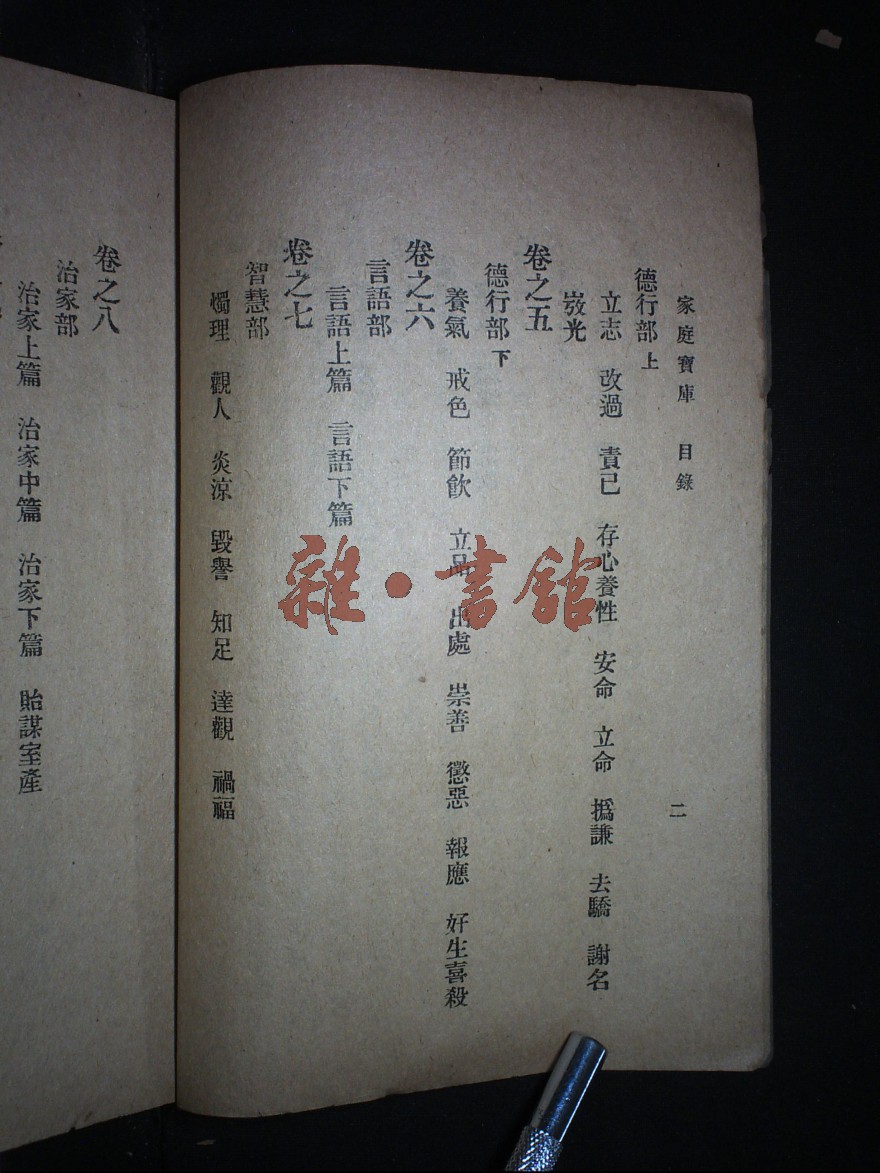 家庭寶庫　目錄　二
德行部上
立志　改過　責己　存心養性　安命　立命　撝謙　去驕　謝名
斂光
卷之五
德行部下
養氣　戒色　節飲　立品　出處　崇善　懲惡　報應　好生喜殺
卷之六
言語部
言語上篇　言語下篇
卷之七
智慧部
燭理　觀人　炎涼　毀譽　知足　達觀　禍福
卷之八
治家部
治家上篇　治家中篇　治家下篇　貽謀室產
雜·書館